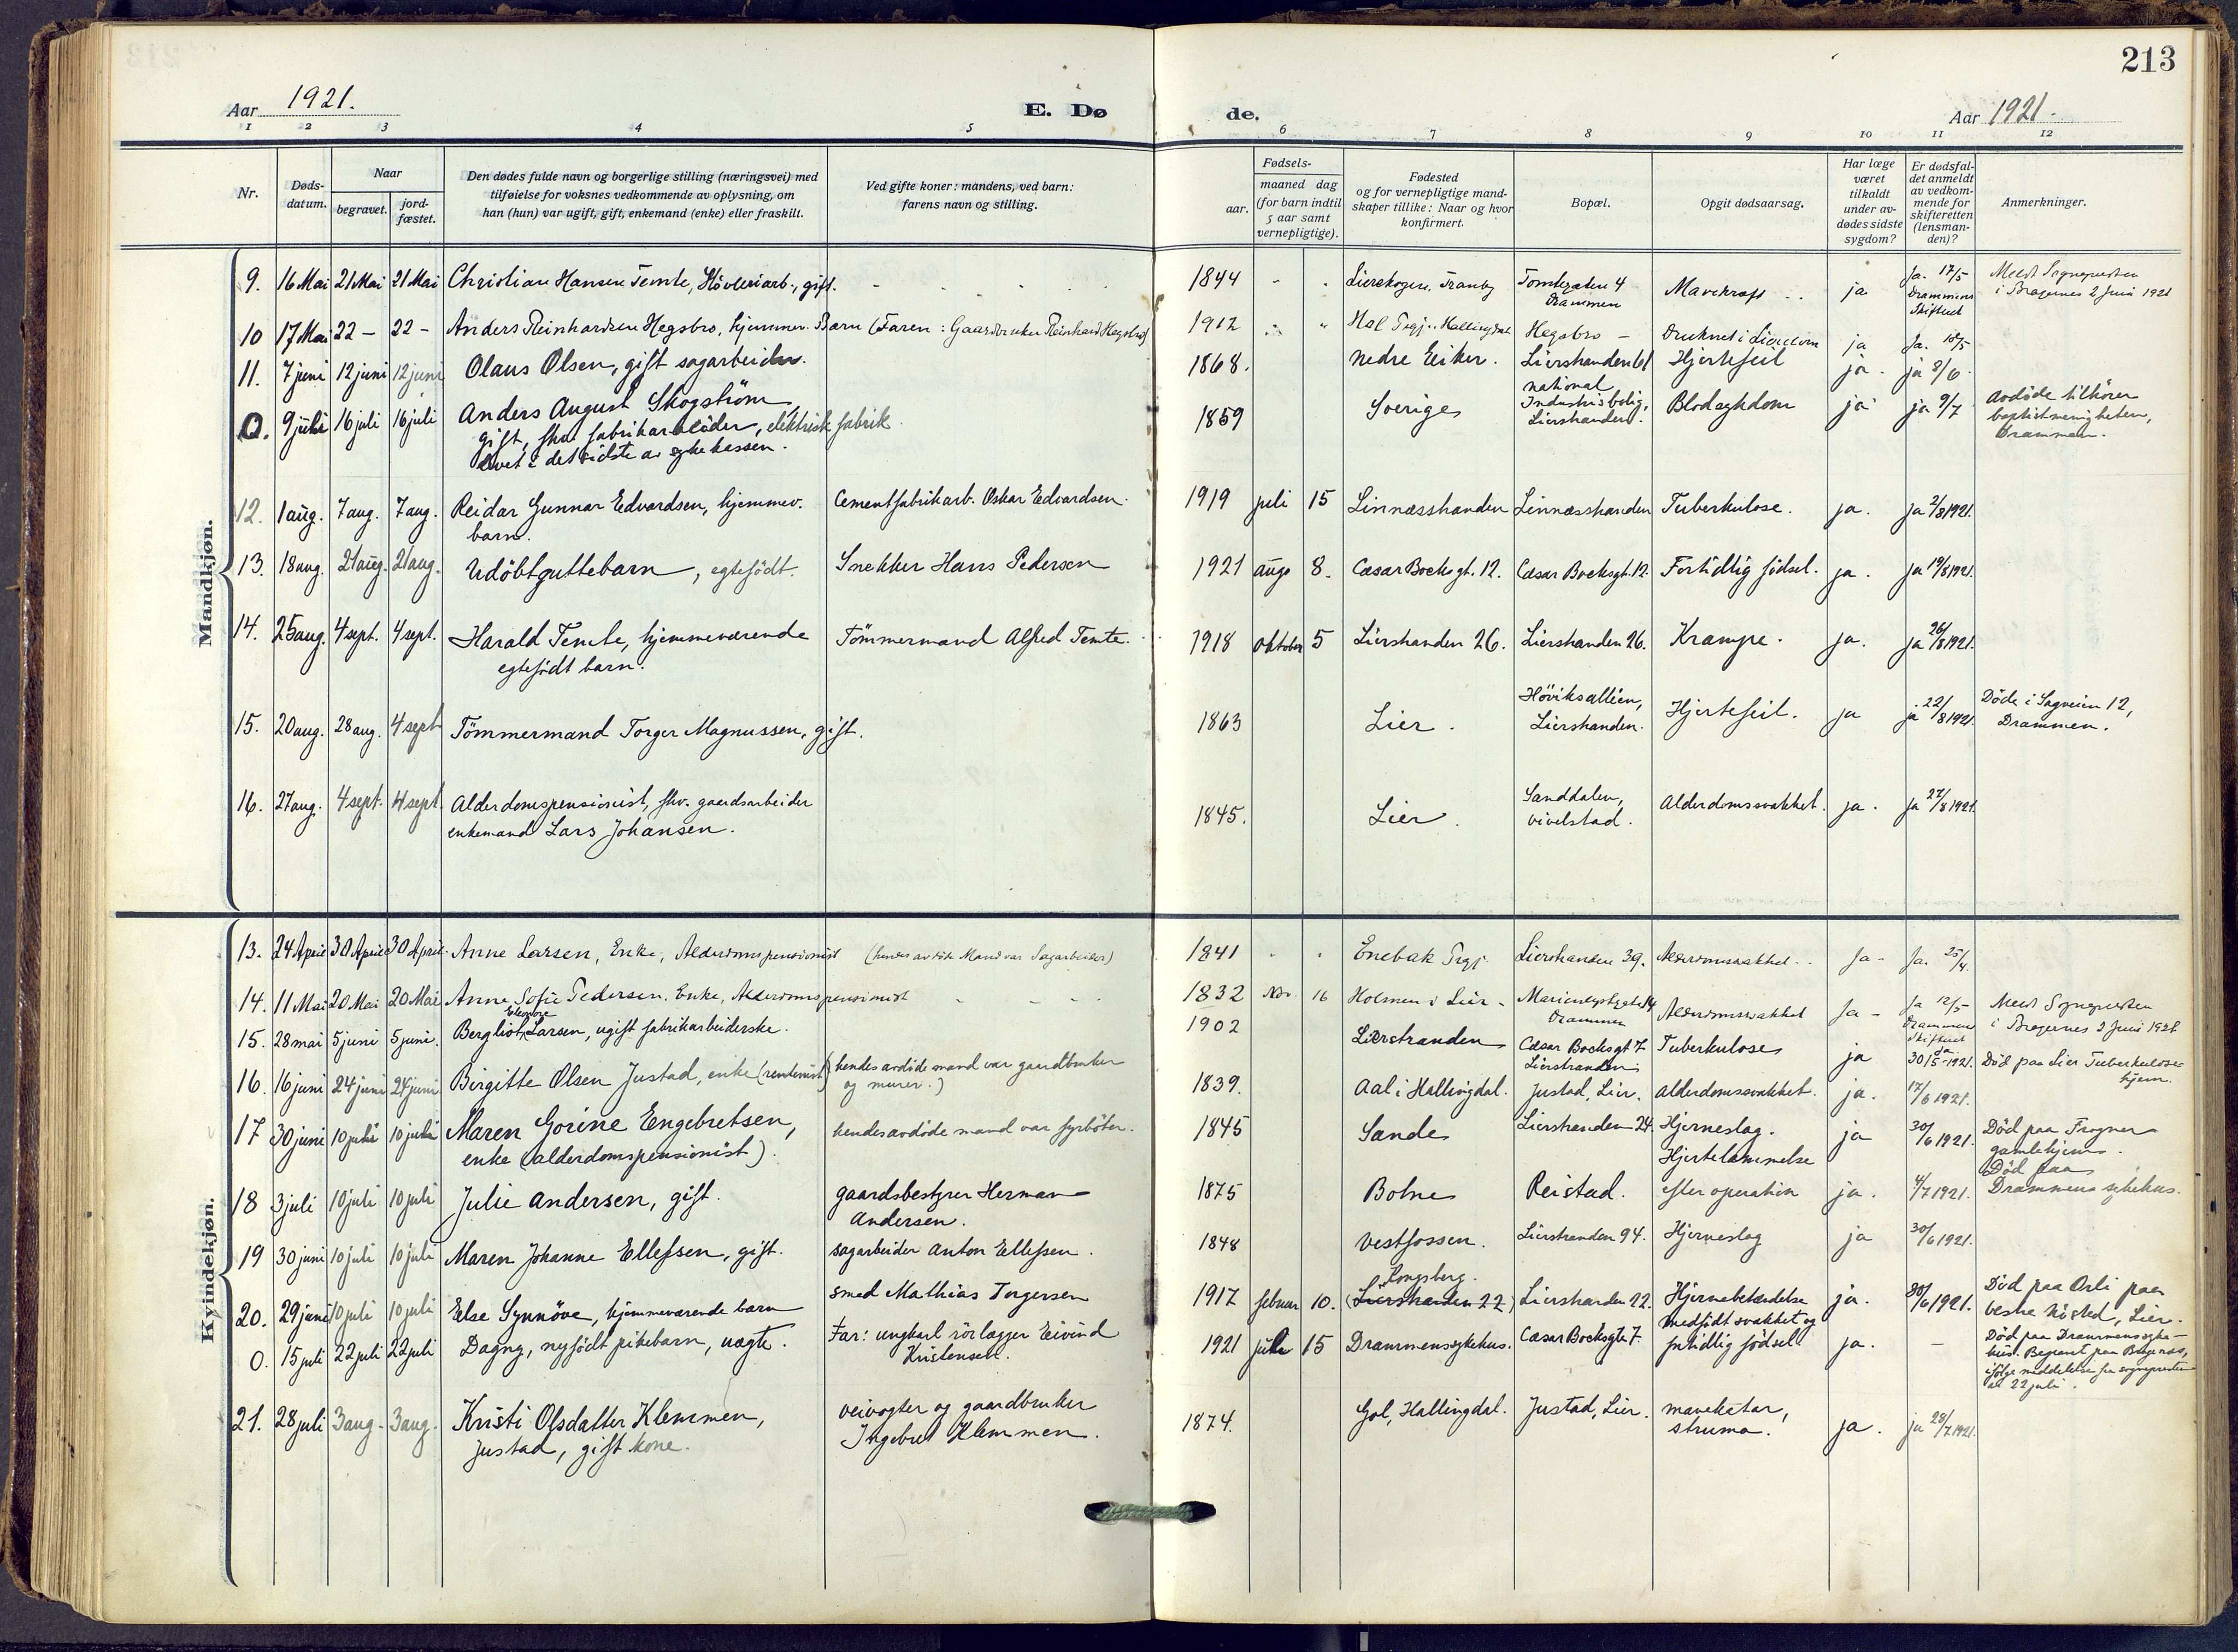 213
Aar 1921. E. Dø de. Aar 1921.
1 2 3 4 5 6 7 8 9 10 11 12
Nr.
Døds-
datum.
Naar
begravet.
jord-
fæstet.
Den dødes fulde navn og borgerlige stilling (næringsvei) med
tilføielse for voksnes vedkommende av oplysning, om
han (hun) var ugift, gift, enkemand (enke) eller fraskilt.
Ved gifte koner: mandens, ved barn:
farens navn og stilling.
Fødsels-
aar.
maaned dag
(for barn indtil
5 aar samt
vernepligtige).
Fødested
og for vernepligtige mand-
skaper tillike: Naar og hvor
konfirmert.
Bopæl.
Opgit dødsaarsag.
Har læge
været
tilkaldt
under av-
dødes sidste
sygdom?
Er dødsfal-
det anmeldt
av vedkom-
mende for
skifteretten
(lensman-
den)?
Anmerkninger.
Mandkjøn.
9. 16 Mai 21 Mai 21 Mai Christian Hansen Temte, Høvleriarb., gift. 1844 Lierskogen, Tranby Tomtegaten 4 Mavekræft ja Ja. 17/5
Drammen
Drammens
Skifteret
Meldt Sognepresten
i Bragernes 2 Juni 1921
10 17 Mai 22 - 22 - Anders Reinhardsen Hegsbro, hjemmev. Barn (Faren: Gaardbruker Reinhard Hegsbro) 1912 Hol Prgj. Hallingdal Hegsbro - Druknet i Lierelven ja Ja. 18/5
11. 7 juni 12 juni 12 juni Olaus Olsen, gift sagarbeider. 1868. Nedre Eiker. Lierstranden 61 Hjertefeil ja. ja 8/6
0. 9 juli 16 juli 16 juli Anders August Skogstrøm, 1859 Sverige national Blodsykdom ja ja 9/7 Avdöde tilhörer
gift, fhv. fabrikarbeider, elektrisk fabrik
Industris bolig,
Lierstranden.
baptistmenigheten,
Drammen.
levet i det sidste av sykekassen.
12. 1 aug. 7 aug. 7 aug. Reidar Gunnar Edvardsen, hjemmev. Cementfabrikarb. Oskar Edvardsen. 1919 juli 15 Linnæsstranden Linnæsstranden Tuberkulose. ja. ja 2/8 1921.
barn.
13. 18 aug. 21 aug. 21 aug. Udöbt guttebarn, egtefödt. Snekker Hans Pedersen 1921 aug. 8. Cæsar Bocks gt. 12. Cæsar Bocks gt. 12. Fortidlig födsel. ja. ja 19/8 1921.
14. 25 aug. 4 sept. 4 sept. Harald Temte, hjemmeværende Tömmermand Alfred Temte. 1918 oktober 5 Lierstranden 26. Lierstranden 26. Krampe. ja. ja 26/8 1921.
egtefödt barn.
15. 20 aug. 28 aug. 4 sept Tömmermand Torger Magnussen, gift. 1863 Lier. Höviksalléen, Hjertefeil. ja ja 22/8 1921 Döde i Sagveien 12,
Lierstranden.
Drammen.
16. 27 aug. 4 sept. 4 sept Alderdomspensionist, fhv. gaardsarbeider 1845. Lier. Sanddalen, Alderdomssvakhet. ja. ja 27/8 1921.
enkemand Lars Johansen.
Vivelstad.
Kvindekjøn.
13. 24 April 30 April 30 April Anne Larsen, Enke, Alderdomspensionist (hendes avdöde Mand var Sagarbeider) 1841 Enebak Prgj. Lierstranden 39. Alderdomssvakhet Ja - Ja. 25/4.
14. 11 Mai 20 Mai 20 Mai Anne Sofie Pedersen. Enke, Alderdomspensionist 1832 Nov. 16 Holmen i Lier. Marienlystgate 14 Alderdomssvakhet Ja - Ja 12/5
Drammen
Drammens
Skifteret
Meldt Sognepresten
i Bragernes 2 Juni 1921.
15. 28 mai 5 juni 5 juni. Bergliot Eleonore Larsen, ugift fabrikarbeiderske. 1902 Lierstranden Cæsar Bocksgt 7 Tuberkulose ja ja 30/5-1921. Död paa Lier Tuberkulose-
Lierstranden
hjem.
16. 16 juni 24 juni 24 juni Birgitte Olsen Justad, enke (rendenist) hendes avdöde mand var gaardbruker 1839. Aal i Hallingdal. Justad, Lier. Alderdomssvakhet. ja. 17/6 1921.
og murer.)
17 30 juni 10 juli 10 juli Maren Gorine Engebretsen, hendes avdöde mand var fyrböter. 1845 Sande Lierstranden 24. Hjerneslag. ja 30/6 1921. Död paa Frogner
enke (alderdomspensionist).
Hjertelammelse
gamlehjem.
18 3 juli 10 juli 10 juli Julie Andersen, gift. gaardsbestyrer Herman 1875 Botne Reistad. efter operation ja. 4/7 1921. Död paa
Andersen.
Drammens sykehus.
19 30 juni 10 juli 10 juli Maren Johanne Ellefsen, gift. sagarbeider Anton Ellefsen. 1848 Vestfossen. Lierstranden 94. Hjerneslag ja 30/6 1921.
20. 29 juni 10 juli 10 juli Else Synnöve, hjemmeværende barn smed Mathias Torgersen 1917 februar 10. Kongsberg. (Lierstranden 22) Lierstranden 22. Hjernebetændelse ja. 30/6 1921. Död paa Osli paa
vestre Nösted, Lier.
0. 15 juli 22 juli 22 juli Dagny, nyfödt pikebarn, uægte. Far: ungkarl rörlægger Eivind 1921 juli 15 Drammens sykehus. Cæsar Bocksgte 7. Medfödt svakhet og ja. - Död paa Drammens syke-
Kristensen.
fortidlig födsel
hus. Begravet paa Bragernes,
ifölge meddelelse fra sognepresten
av 22 juli.
21. 28 juli 3 aug. 3 aug. Kristi Olsdatter Klemmen, veivogter og gaardbruker 1874. Gol, Hallingdal. Justad, Lier. mavekatar, ja. ja 28/7 1921.
Justad, gift kone. Ingebret Klemmen.
struma.